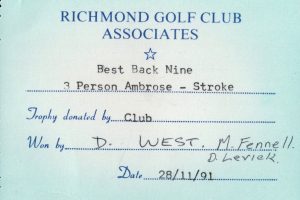 RICHMOND GOLF CLUB
ASSOCIATES
Best Back Nine
3 Person Ambrose - Stroke
Trophy donated by Club
Won by D. WEST, M. Fennell.
D. Levick
Date 28/11/91